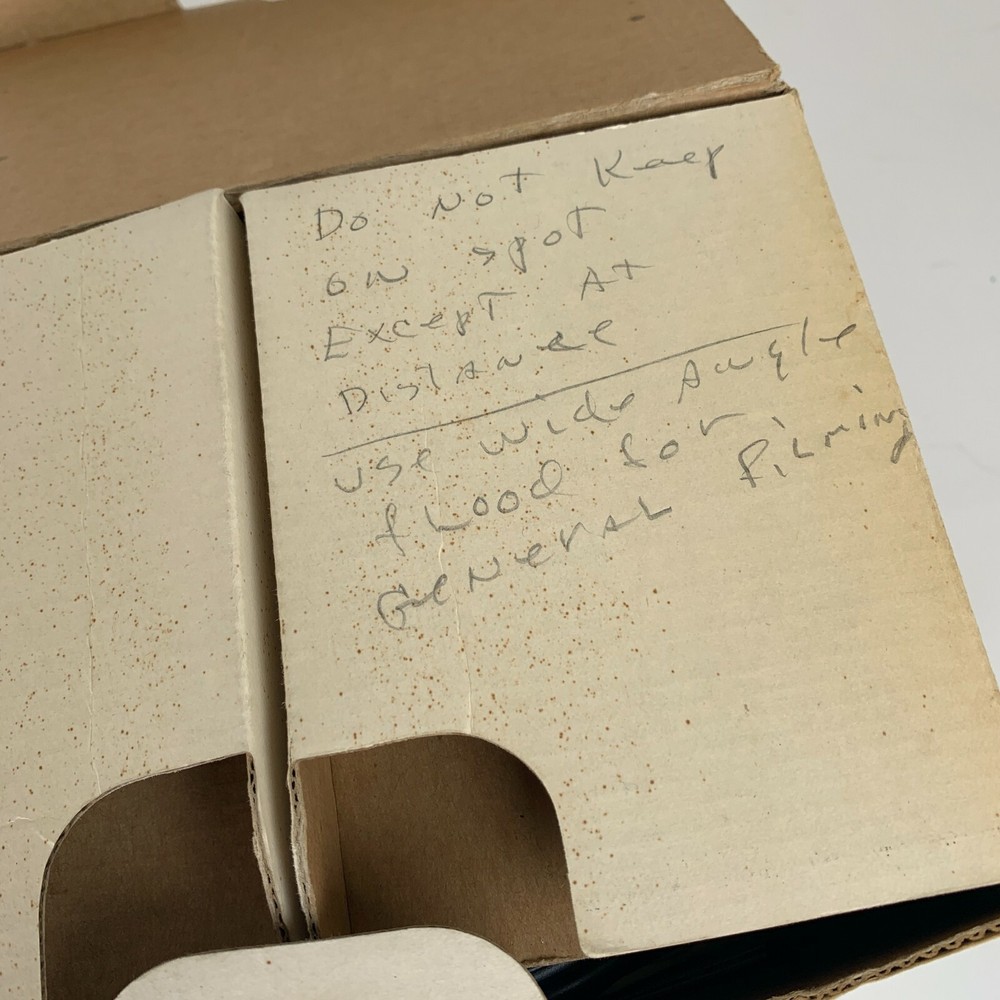 Do Not Keep
on spot
Except At
Distance
use wide Angle
flood for
General filming